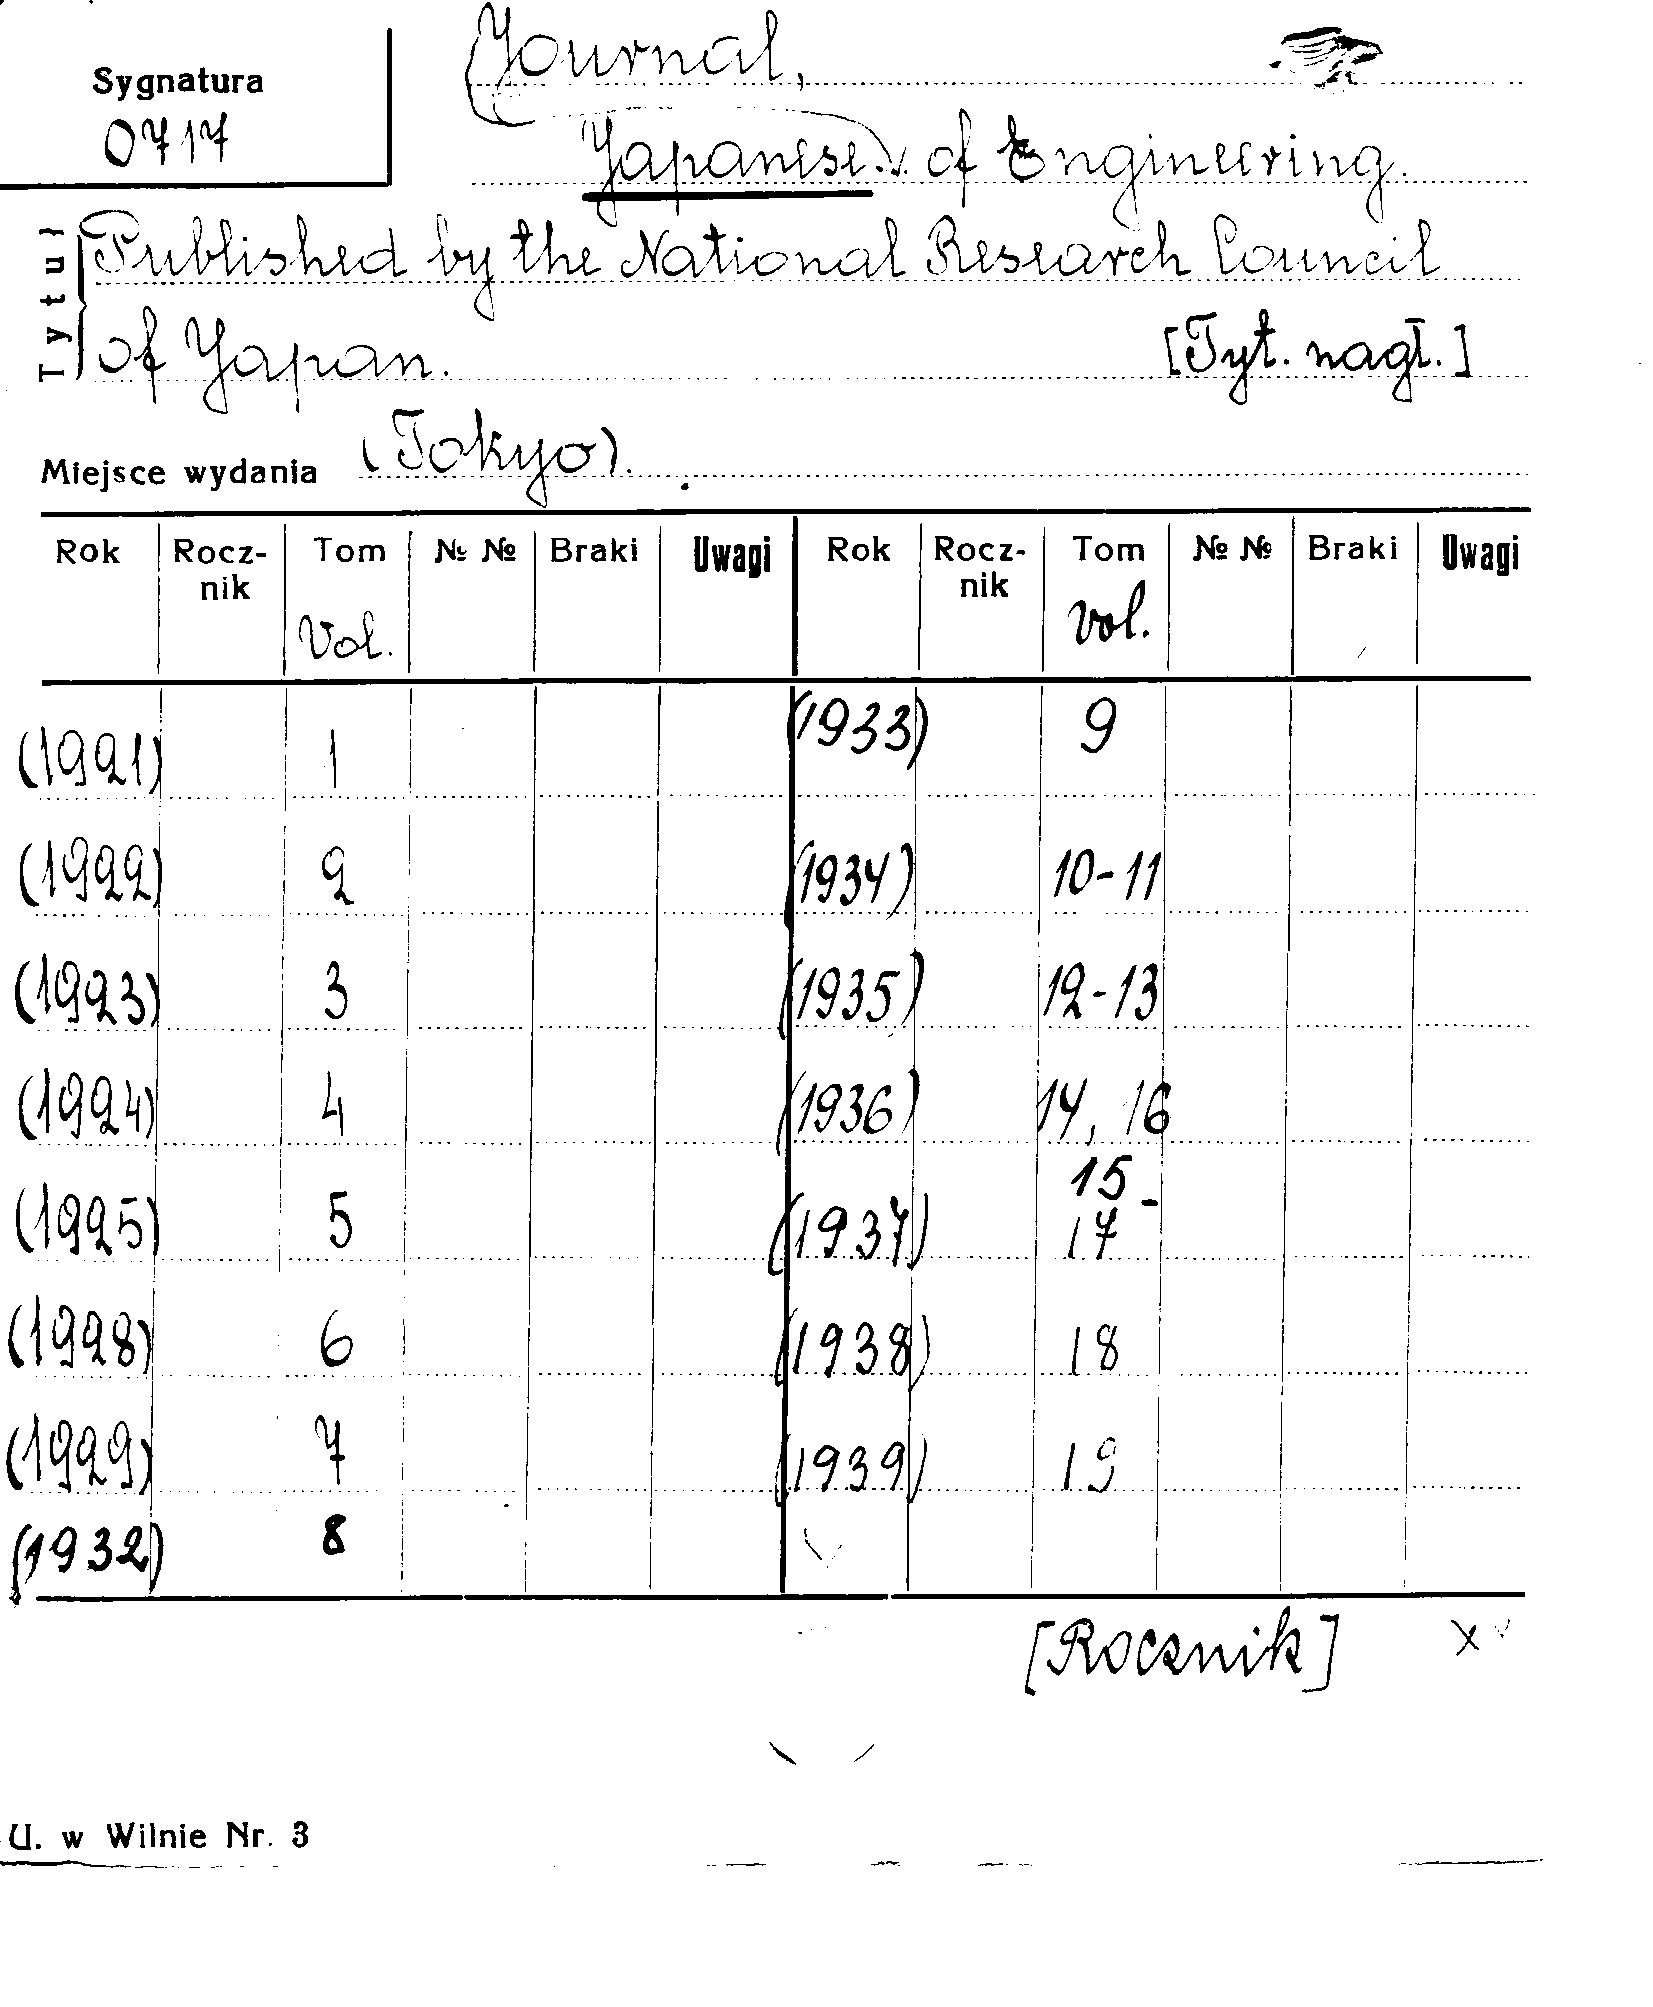 Sygnatura
0717
Journal,
Japanese of Engineering.
Tytuł
Published by the National Research Council
of Japan.
[Tyt. nagł.]
Miejsce wydania (Tokyo).
Rok Rocz-nik Tom № № Braki Uwagi Rok Rocz-nik Tom № № Braki Uwagi
Vol. vol.
(1921) 1 (1933) 9
(1922) 2 (1934) 10-11
(1923) 3 (1935) 12-13
(1924) 4 (1936) 14, 16
(1925) 5 (1937) 15-17
(1928) 6 (1938) 18
(1929) 7 (1939) 19
(1932) 8
[Rocznik] x
U. w Wilnie Nr. 3